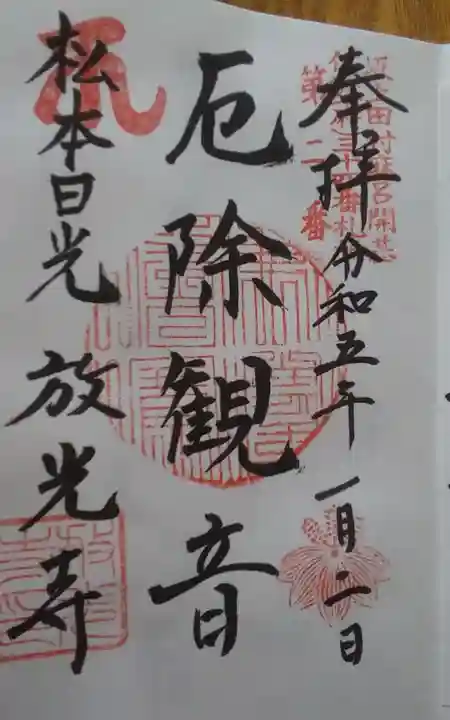 奉拝 令和五年一月二日
第二番
厄除観音
松本日光 放光寺